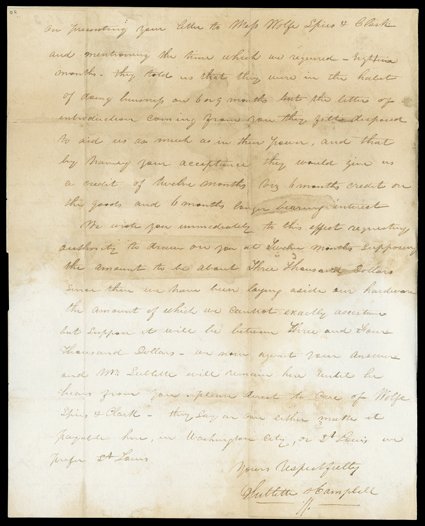 on presenting your letter to Mess Wolfe Spies & Clark
and mentioning the time which we required - Eighteen
months - they told us that they were in the habit
of doing business on 6 or 9 months but the letter of
introduction coming from you they felt disposed
to aid us as much as in their power, and that
by having your acceptance they would give us
a credit of twelve months viz 6 months credit on
the goods and 6 months longer bearing interest
We wish you immediately to this effect requesting
authority to draw on you at Twelve months supposing
the amount to be about Three Thousand Dollars
Since then we have been laying aside our hardware
the amount of which we cannot exactly ascertain
but suppose it will be between Three and Four
thousand Dollars - we now await your answer
and Mr. Sublette will remain here until he
hears from you - please direct to care of Wolfe
Spies & Clark - they say we can either make it
payable here, in Washington City, or St Louis we
prefer St Louis
Yours Respectfully
Sublette & Campbell